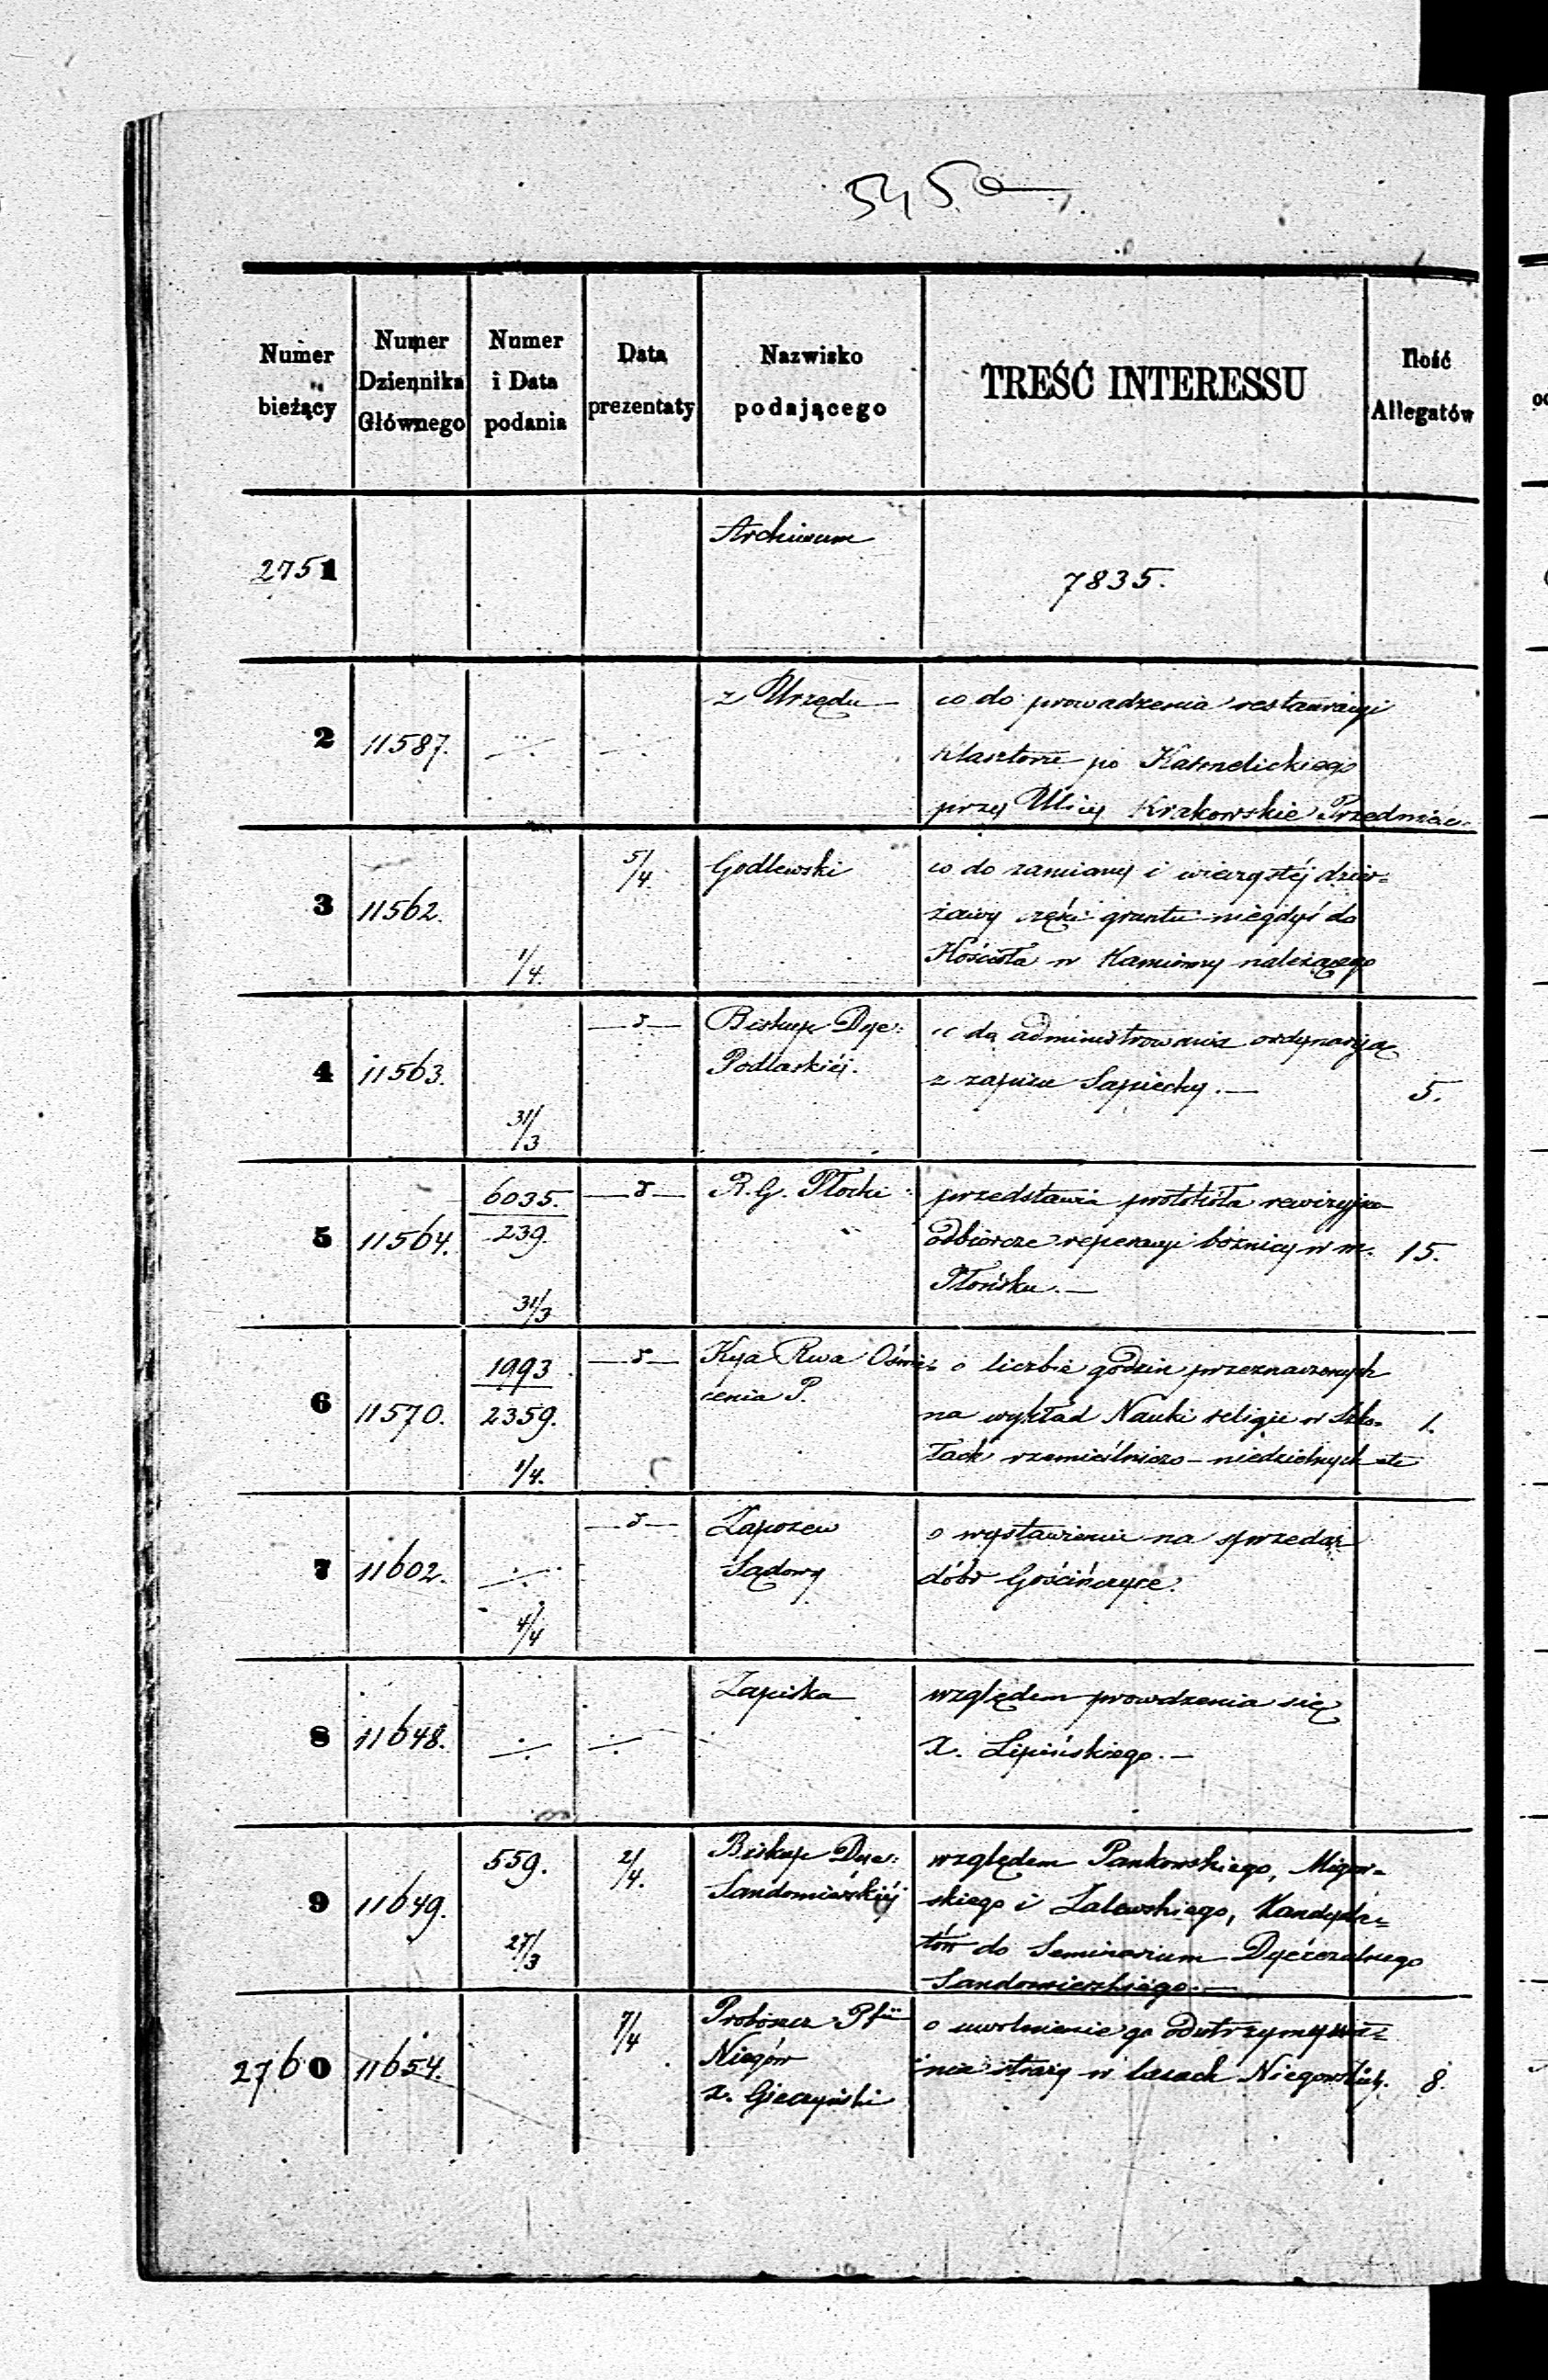 545
Numer bieżący | Numer Dziennika Głównego | Numer i Data podania | Data prezentaty | Nazwisko podającego | TREŚĆ INTERESSU | Ilość Allegatów
2751 Archiwum 7835.
2 11587. z Urzędu co do prowadzenia restauracyi
klasztoru po Karmelickiego
przy Ulicy Krakowskie Przedmieś:
3 11562. 1/4. 5/4. Godlewski co do zamiany i wieczystéj dzier=
żawy części gruntu niegdyś do
Kościoła w Kamionny należącego
4 11563. 31/3 —d— Biskup Dye: co do administrowania ordynaryją
Podlaskiéj. z zapisu Sapiechy.— 5.
5 11564. 6035. —d— R. G. Płocki przedstawia protokóła rewizyjno
239. odbiorcze reperacyi bóżnicy w m. 15.
31/3 Płońsku.—
6 11570. 1993 —d— Kya Rwa Oświe= o liczbie godzin przeznaczonych
2359. cenia P. na wykład Nauki religii w Szko= 1.
1/4. łach rzemieślniczo-niedzielnych etc
7 11602. —d— Zapozew o wystawienie na sprzedaż
4/4 Sądowy dóbr Gościńczyce.
8 11648. Zapiska względem prowdzenia się
X. Lipińskiego.—
9 11649. 559. 2/4. Biskup Dye: względem Pankowskiego, Migur=
27/3 Sandomierskiéj skiego i Zalewskiego, Kandyda=
tów do Seminarium Dyecezalnego
Sandomierskiego.—
2760 11654. 7/4 Proboszcz Pfii o uwolnienie go od utrzymywa=
Niegów nia straży w lasach Niegowskich. 8.
X. Gieczyński